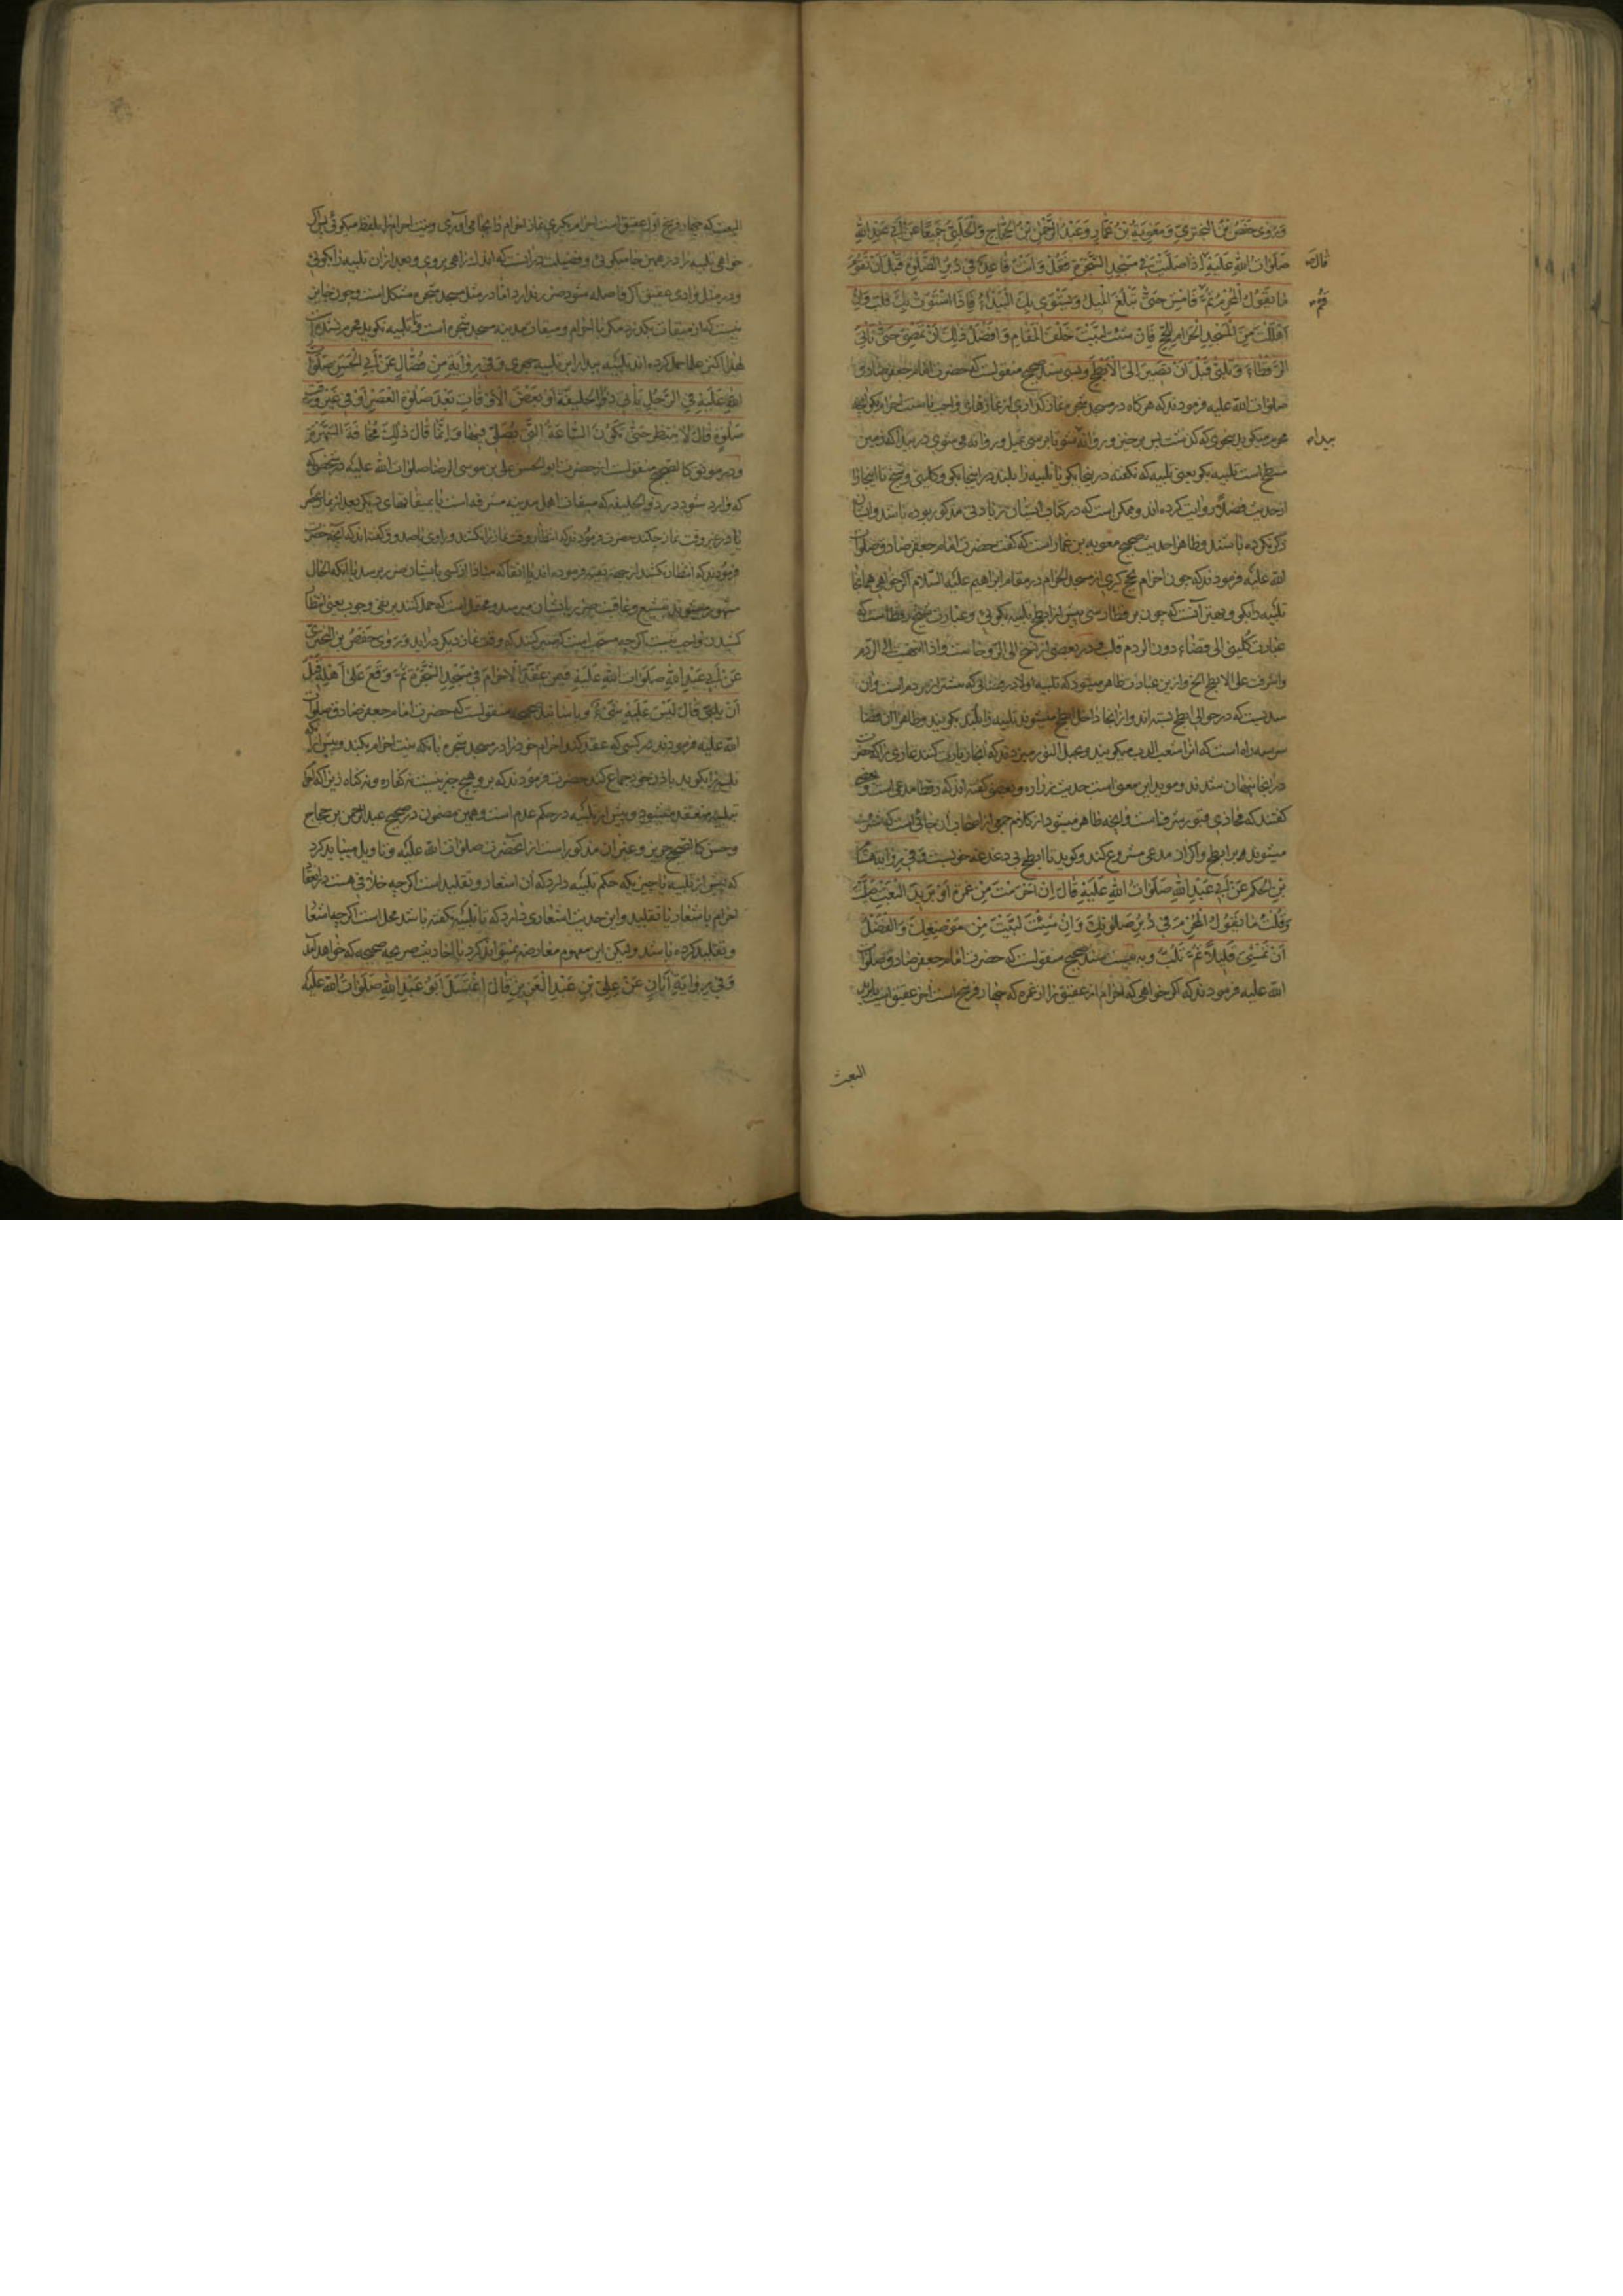 وَرَوى حَفْصُ بْنُ الْبَخْتَرِيِّ وَمُعٰوِيَةُ بْنُ عَمّارٍ وَعَبْدُ الرَّحْمٰنِ بْنُ الْحَجّاجِ وَالْحَلَبِيُّ جَمِيعًا عَنْ اَبِي عَبْدِ اللّٰهِ
صَلَوٰاتُ اللّٰهِ عَلَيْهِ اِذٰا صَلَّيْتَ فِي مَسْجِدِ الشَّجَرَةِ فَقُلْ وَاَنْتَ قٰاعِدٌ فِي دُبُرِ الصَّلٰوةِ قَبْلَ اَنْ تَقُومَ
مٰا يَقُولُ الْمُحْرِمُ ثُمَّ قُمْ فَامْشِ حَتّٰى تَبْلُغَ الْمِيلَ وَتَسْتَوِيَ بِكَ الْبَيْدٰاءُ فَاِذَا اسْتَوَتْ بِكَ فَلَبِّ وَاِنْ
اَهْلَلْتَ مِنَ الْمَسْجِدِ الْحَرٰامِ لِلْحَجِّ فَاِنْ شِئْتَ لَبَّيْتَ خَلْفَ الْمَقٰامِ وَاَفْضَلُ ذٰلِكَ اَنْ تَمْضِيَ حَتّٰى تَأْتِيَ
الرَّقْطٰاءَ وَتُلَبِّيَ قَبْلَ اَنْ تَصِيرَ اِلَى الْاَبْطَحِ وبسی سند صحیح منقولست که حضرت امام جعفر صادق
صلوات الله علیه فرمودند که هرگاه در مسجد شجره نماز گذاری از نمازهای واجب یا سنت احرام بگو آنچه
محرم میگوید بنحوی که گذشت پس برخیز و روانه شو تا برسی بمیل و روانه می شوی در بیدا که زمین
مسطح است تلبیه بگو یعنی تلبیه که نگفته در اینجا بگو یا تلبیه را بلند در اینجا بگو و کلینی و شیخ تا اینجا را
از حدیث فضلا روایت کرده اند و ممکن است که در کتاب ایشان زیادتی مذکور بوده باشد و ایشان
ذکر نکرده باشند و ظاهرا حدیث صحیح معویه بن عمار است که گفت حضرت امام جعفر صادق صلوات
الله علیه فرمودند که چون احرام حج گیری از مسجد الحرام در مقام ابراهیم علیه السلام اگر خواهی همانجا
تلبیه را بگو و بهتر آنست که چون برقطا رسی پیش از ابطح تلبیه بگوئی و عبارت شیخ رقطاست که
عبارت کلینی الی فضاء دون الردم قلب و در بعضی از نسخ الی الروحاست و اذا انتهیت الی الردم
واشرفت علی الابطح الخ و ازین عبارت ظاهر میشود که تلبیه اولا در فضائی که پیشتر از ردم است و آن
سدیست که در حوالی ابطح بسته اند و از آنجا داخل ابطح میشوند تلبیه را بلند بگویند و ظاهرا آن فضا
سر سه راه است که انرا شعب الدب میگویند و بجبل النور میرود که آنجا زیارت کنند غاری را که حضرت
در آنجا پنهان شدند و موید این معنی است حدیث زراره و بعضی گفته اند که رقطا مدعی است و بعضی
گفتند که محاذی قبور شرفاست و آنچه ظاهر میشود از کلام جمعی از اصحاب آن جائی است که مشرف
میشوند بر ابطح و اگر از مدعی شروع کند و گوید تا ابطح بی دغدغه خوبست وَفِي رِوٰايَةِ هِشٰامِ
بْنِ الْحَكَمِ عَنْ اَبِي عَبْدِ اللّٰهِ صَلَوٰاتُ اللّٰهِ عَلَيْهِ قٰالَ اِنْ اَحْرَمْتَ مِنْ غَمْرَةَ اَوْ بَرِيدِ الْبَعْثِ صَلَّيْتَ
وَقُلْتَ مٰا يَقُولُ الْمُحْرِمُ فِي دُبُرِ صَلٰوتِكَ وَاِنْ شِئْتَ لَبَّيْتَ مِنْ مَوْضِعِكَ وَالْفَضْلُ
اَنْ تَمْشِيَ قَلِيلًا ثُمَّ تُلَبِّيَ و به بیست سند صحیح منقولست که حضرت امام جعفر صادق صلوات
الله علیه فرمودند که اگر خواهی که احرام از عقیق را از غمره که چهار فرسخ است آخر عقیق است یا برید
قال ص
قم ص
بیداء
البعث
البعث که چهار فرسخ اول عقیق است احرام بگیری نماز احرام را بجا می آوری و نیت احرام را بلفظ میگوئی پس اگر
خواهی تلبیه را در همین جا میگوئی و فضیلت در آنست که اندک راهی بروی و بعد از آن تلبیه را بگوئی
و در مثل وادی عقیق اگر فاصله شود ضرر ندارد اما در مثل مسجد شجره مشکل است و چون جایز
نیست که از میقات بگذرند مگر با احرام و میقات مدینه مسجد شجره است و تا تلبیه نگوید محرم نشده است
لهذا اکثر علما حمل کرده اند تلبیه بیدا را بر تلبیه جهری وَفِي رِوٰايَةِ ابْنِ فَضّٰالٍ عَنْ اَبِي الْحَسَنِ صَلَوٰاتُ
اللّٰهِ عَلَيْهِ فِي الرَّجُلِ يَأْتِي ذَا الْحُلَيْفَةِ اَوْ بَعْضَ الْاَوْقٰاتِ بَعْدَ صَلٰوةِ الْعَصْرِ اَوْ فِي غَيْرِ وَقْتِ
صَلٰوةٍ قٰالَ لٰا يَنْتَظِرُ حَتّٰى تَكُونَ السّٰاعَةُ الَّتِي يُصَلّٰى فِيهٰا وَاِنَّمٰا قٰالَ ذٰلِكَ مَخٰافَةَ الشُّهْرَةِ
و در موثق کالصحیح منقولست از حضرت ابو الحسن علی بن موسی الرضا صلوات الله علیه در شخصی
که وارد شود در ذو الحلیفه که میقات اهل مدینه مشرفه است یا بمیقاتهای دیگر بعد از نماز عصر
یا در غیر وقت نماز چکند حضرت فرمودند که انتظار وقت نماز را نکشند و راوی یا صدوق گفته اند که آنچه حضرت
فرمودند که انتظار نکشند از جهة تقیه فرموده اند یا اتقا که مبادا از کسی بایشان ضرر برسد با آنکه الحال
مشهور میشوند بتشیع و عاقبت ضرر بایشان میرسد و محتمل است که حمل کنند بر نفی وجوب یعنی انتظار
کشیدن واجب نیست اگر چه مستحب است که صبر کنند که وقت نماز دیگر درآید وَرَوى حَفْصُ بْنُ الْبَخْتَرِيِّ
عَنْ اَبِي عَبْدِ اللّٰهِ صَلَوٰاتُ اللّٰهِ عَلَيْهِ فِيمَنْ عَقَدَ الْاِحْرٰامَ فِي مَسْجِدِ الشَّجَرَةِ ثُمَّ وَقَعَ عَلٰى اَهْلِهِ قَبْلَ
اَنْ يُلَبِّيَ قٰالَ لَيْسَ عَلَيْهِ شَيْءٌ و باسانید صحیحه منقولست که حضرت امام جعفر صادق صلوات
الله علیه فرمودند در کسی که عقد کند احرام خود را در مسجد شجره بانکه نیت احرام بکند و پیش از آنکه
تلبیه را بگوید با زن خود جماع کند حضرت فرمودند که بر او هیچ چیز نیست نه کفاره و نه گناه زیرا که احرام
بتلبیه منعقد میشود و پیش از تلبیه در حکم عدم است و همین مضمون در صحیح عبد الرحمن بن حجاج
و حسن کالصحیح حریز و غیر آن مذکور است از آنحضرت صلوات الله علیه و تاویل میباید کرد
که پیش از تلبیه یا چیزیکه حکم تلبیه دارد که آن اشعار و تقلید است اگر چه خلافی هست در انعقاد
احرام باشعار یا تقلید و این حدیث اشعاری دارد که تا تلبیه نگفته باشد محل است اگر چه اشعار
و تقلید کرده باشد و لیکن این مفهوم معارضه نمیتواند کرد با احادیث صریحه صحیحه که خواهد آمد
وَفِي رِوٰايَةِ اَبٰانٍ عَنْ عَلِيِّ بْنِ عَبْدِ الْعَزِيزِ قٰالَ اغْتَسَلَ اَبُو عَبْدِ اللّٰهِ صَلَوٰاتُ اللّٰهِ عَلَيْهِ